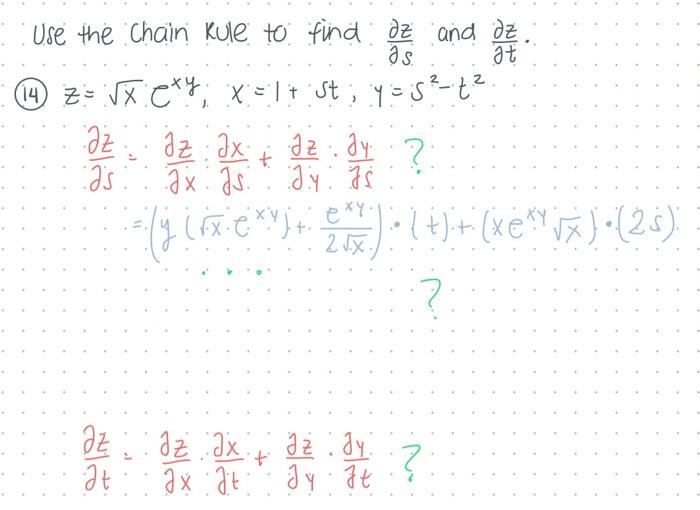 Use the Chain Rule to find ∂z/∂s and ∂z/∂t.
(14) z = √x e^xy, x = 1 + st, y = s² - t²
∂z/∂s = ∂z/∂x · ∂x/∂s + ∂z/∂y · ∂y/∂s ?
= (y(√x · e^xy) + e^xy/2√x) · (t) + (xe^xy √x) · (2s)
...
?
∂z/∂t = ∂z/∂x · ∂x/∂t + ∂z/∂y · ∂y/∂t ?